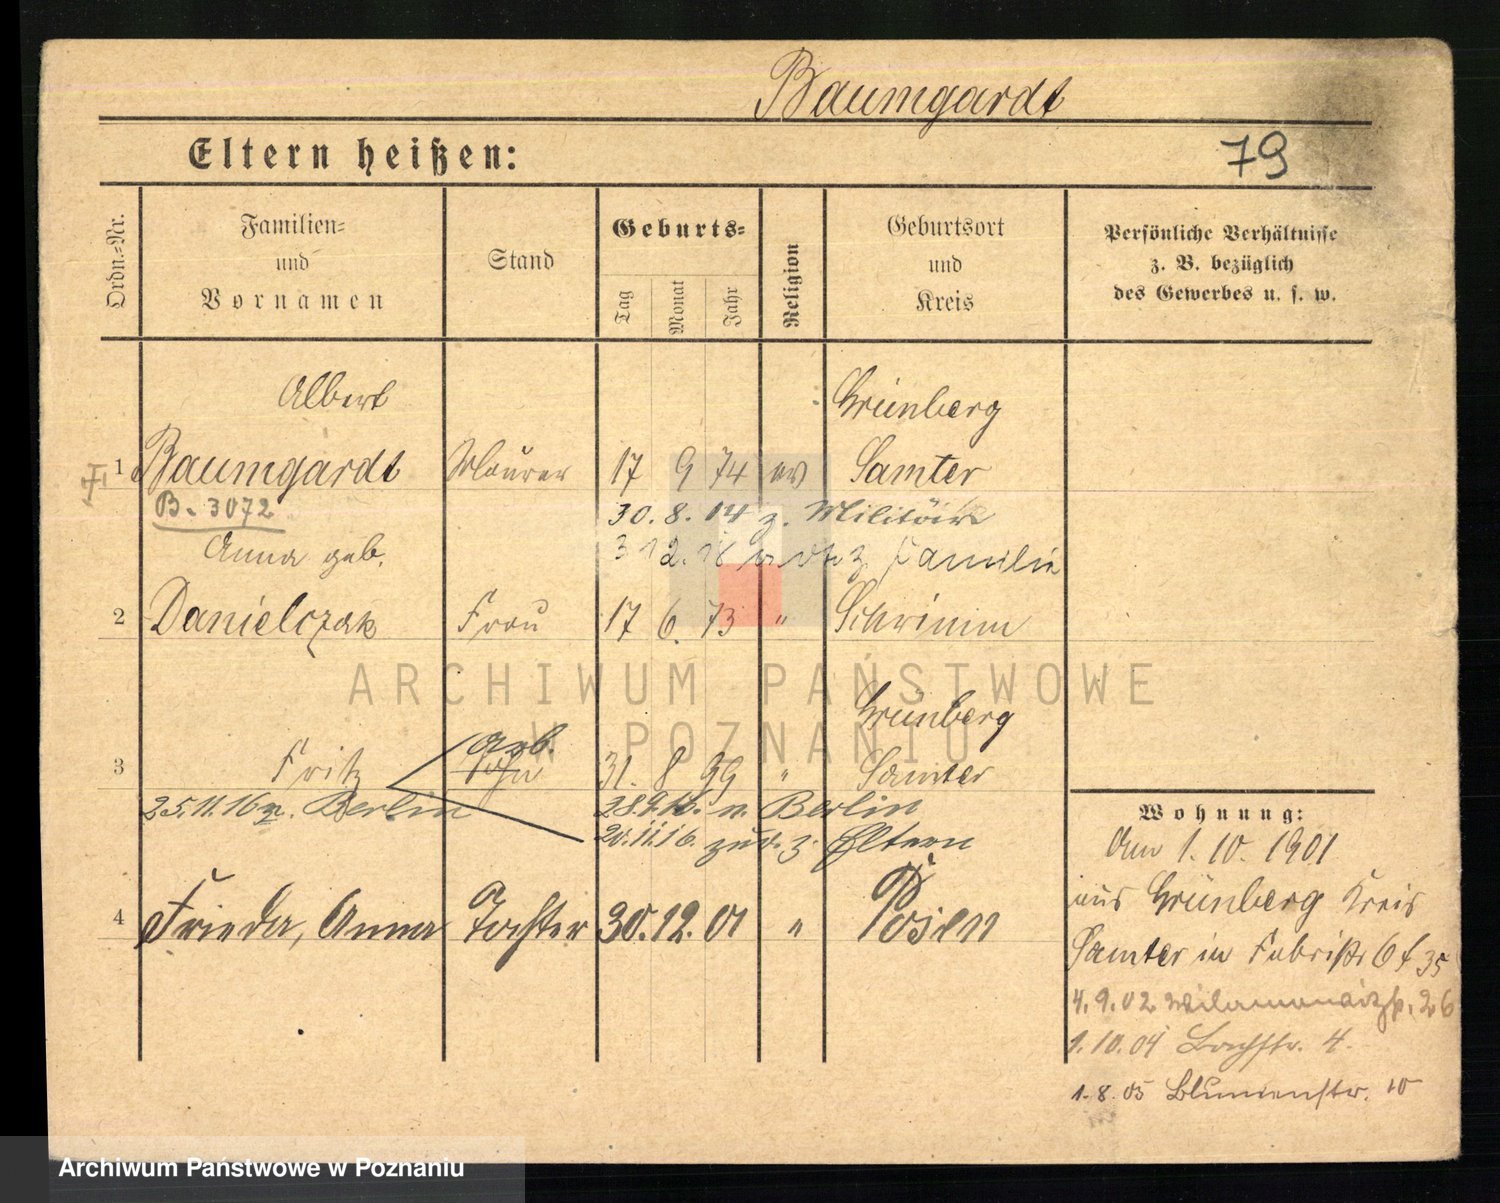 Baumgardt
Eltern heißen:
79
Ordn.-Nr.
Familien-
und
Vornamen
Stand
Geburts-
Tag
Monat
Jahr
Religion
Geburtsort
und
Kreis
Persönliche Verhältnisse
z. B. bezüglich
des Gewerbes u. s. w.
Albert Grünberg
1 Baumgardt Maurer 17 9 74 ev Samter
B. 3072 30. 8. 14 z. Militär
Anna geb. 3 12. 18 z Familie
2 Danielczak Frau 17 6. 73 " Schrimm
Grünberg
Arb.
3 Fritz Sohn 31. 8 99 " Samter
25.11.16 n. Berlin 28.9.16. n. Berlin
20.11.16. zur. z. Eltern
4 Frieda, Anna Tochter 30. 12. 01 " Posen
Wohnung:
Am 1. 10. 1901
aus Grünberg Kreis
Samter in Fabrikstr 35
4. 9. 02 26
1. 10. 04 Bachstr. 4.
1. 8. 05 Blumenstr. 10
ARCHIWUM PAŃSTWOWE
W POZNANIU
Archiwum Państwowe w Poznaniu